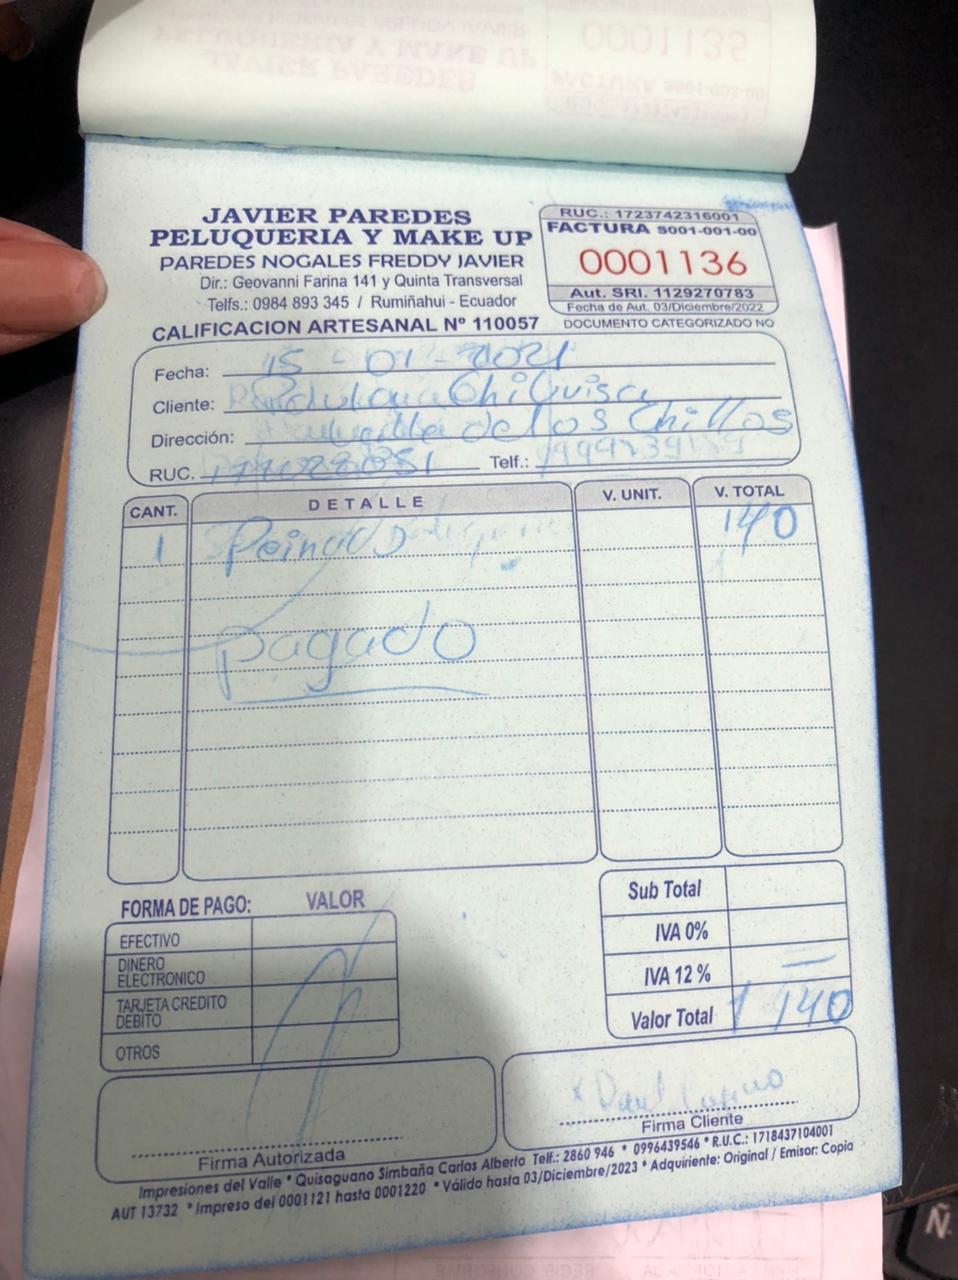 JAVIER PAREDES
PELUQUERIA Y MAKE UP
PAREDES NOGALES FREDDY JAVIER
Dir.: Geovanni Farina 141 y Quinta Transversal
Telfs.: 0984 893 345 / Rumiñahui - Ecuador
CALIFICACION ARTESANAL Nº 110057
RUC.: 1723742316001
FACTURA S001-001-00
0001136
Aut. SRI. 1129270783
Fecha de Aut. 03/Diciembre/2022
DOCUMENTO CATEGORIZADO NO
Fecha: 15 - 01 - 2021
Cliente: Chiquisa
Dirección: de los Chillos
RUC. Telf.:
CANT. DETALLE V. UNIT. V. TOTAL
1 Peinado 140
pagado
FORMA DE PAGO: VALOR
EFECTIVO
DINERO ELECTRONICO
TARJETA CREDITO DEBITO
OTROS
Sub Total
IVA 0%
IVA 12 % —
Valor Total 140
Firma Autorizada
Firma Cliente
Impresiones del Valle * Quisaguano Simbaña Carlos Alberto Telf.: 2860 946 * 0996439546 * R.U.C.: 1718437104001
AUT 13732 * Impreso del 0001121 hasta 0001220 * Válido hasta 03/Diciembre/2023 * Adquiriente: Original / Emisor: Copia
Ñ